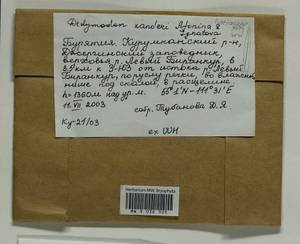 Didymodon zanderi Afonina &
Ignatova
Бурятия, Курумканский р-н,
Джергинский заповедник,
верховья р. Левый Биранкур, в
3,5 км к З-ЮЗ от истока р. Левый
Биранкур, по руслу речки, во влажной
нише под скалой, в расщелине
h=1360м над ур.м. 55°1'N-111°31'E
11.VII 2003
собр. Тубанова Д.Я.
Ку-21/03
ex UUH
Herbarium MW, Bryophyta